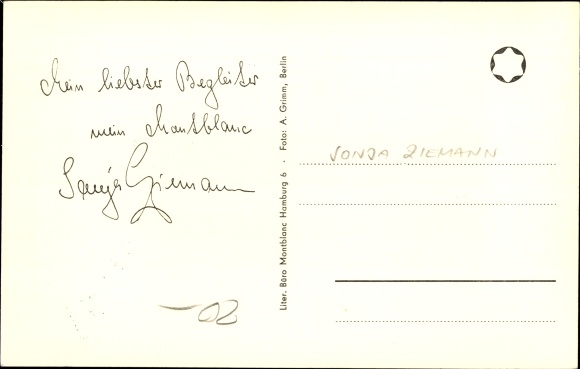 Mein liebster Begleiter
mein Montblanc
Sonja Ziemann
Liter. Büro Montblanc Hamburg 6 · Foto: A. Grimm, Berlin
SONJA ZIEMANN